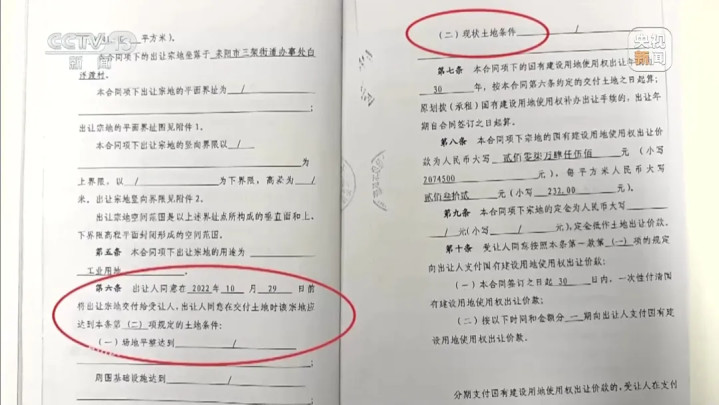 CCTV 13
新闻
央视
新闻
平方米)。
本合同项下的出让宗地坐落于 耒阳市三架街道办事处白
洋渡村。
本合同项下出让宗地的平面界址为 /
出让宗地的平面界址图见附件1。
本合同项下出让宗地的竖向界限以 /
为
上界限,以 / 为下界限,高差为 /
米。出让宗地竖向界限见附件2。
出让宗地空间范围是以上述界址点所构成的垂直面和上、
下界限高程平面封闭形成的空间范围。
第五条 本合同项下出让宗地的用途为
工业用地
第六条 出让人同意在 2022年 10 月 29 日前
将出让宗地交付给受让人,出让人同意在交付土地时该宗地应
达到本条第 (二) 项规定的土地条件:
(一)场地平整达到 /
周围基础设施达到 /
(二)现状土地条件 /
第七条 本合同项下的国有建设用地使用权出让年期为
30 年,按本合同第六条约定的交付土地之日起算;
原划拨(承租)国有建设用地使用权补办出让手续的,出让年
期自合同签订之日起算。
第八条 本合同项下宗地的国有建设用地使用权出让价
款为人民币大写 贰佰零柒万肆仟伍佰 元(小写
2074500 元),每平方米人民币大写
贰佰叁拾贰 元(小写 232.00 元)。
第九条 本合同项下宗地的定金为人民币大写
/ 元(小写 / 元),定金抵作土地出让价款。
第十条 受让人同意按照本条第一款第 (一) 项的规定
向出让人支付国有建设用地使用权出让价款:
(一)本合同签订之日起 30 日内,一次性付清国
有建设用地使用权出让价款;
(二)按以下时间和金额分 一 期向出让人支付国有建
设用地使用权出让价款。
分期支付国有建设用地使用权出让价款的,受让人在支付